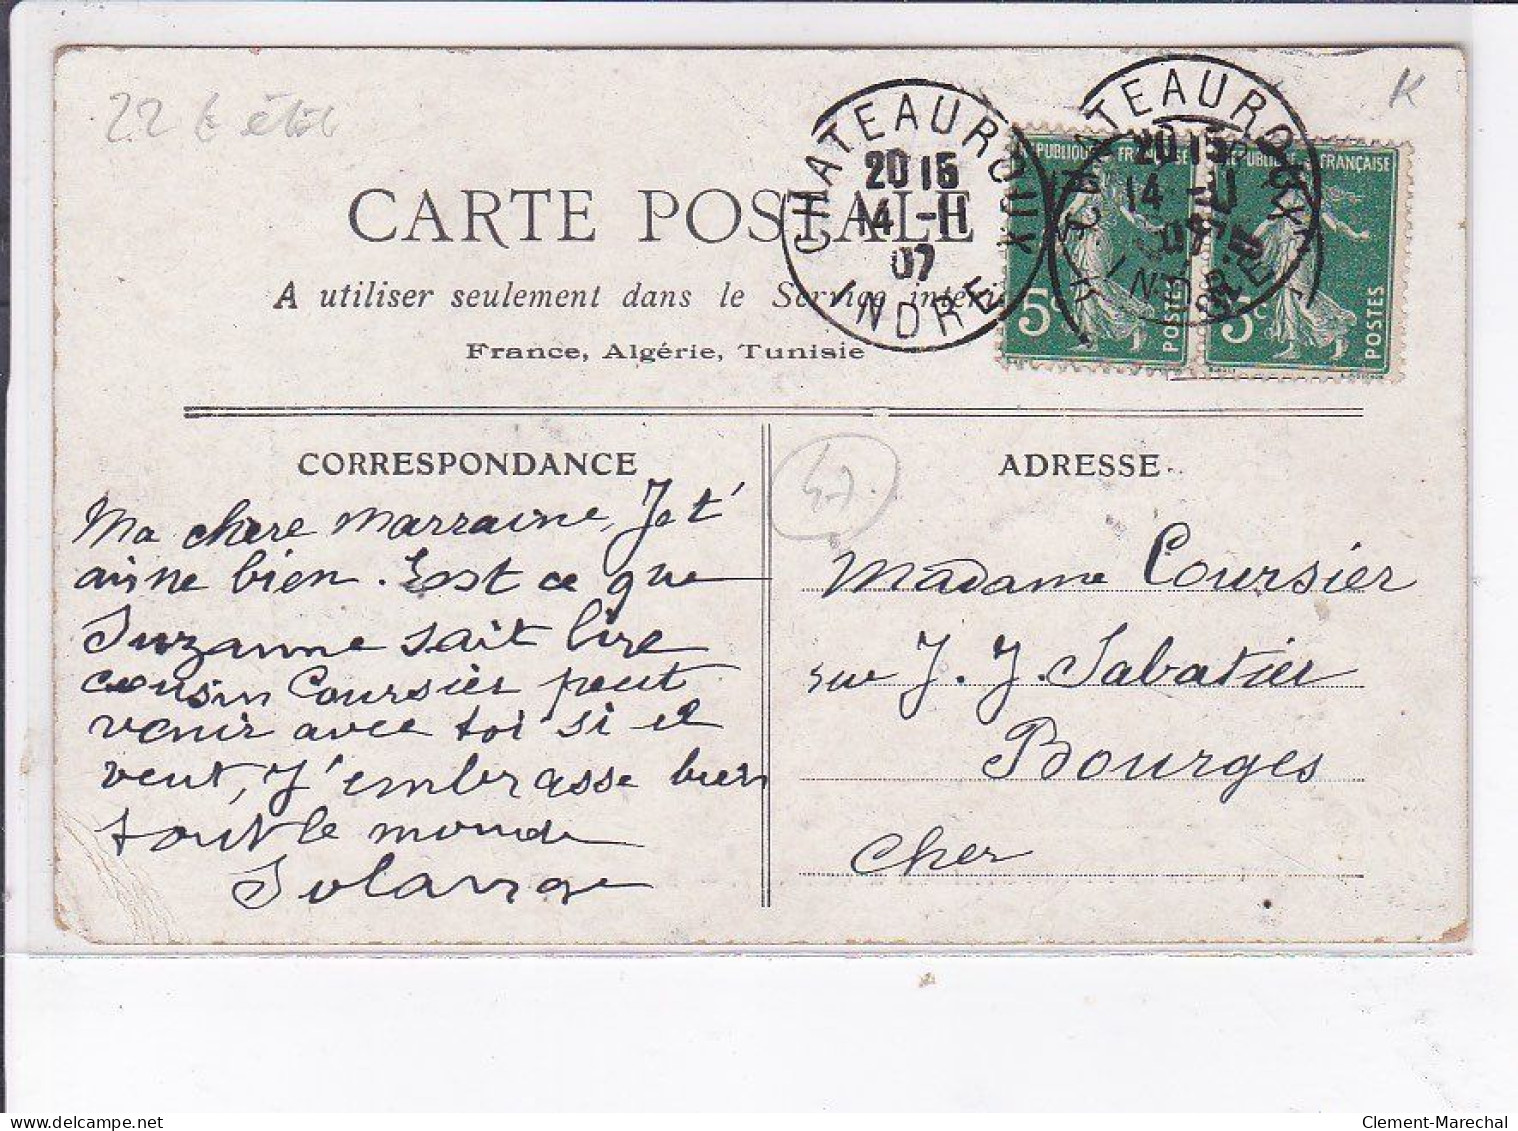 22 t
K
CHATEAUROUX
20 15
14 -11
07
INDRE
CHATEAUROUX
20 15
14 -11
07
INDRE
REPUBLIQUE FRANÇAISE
5c
POSTES
REPUBLIQUE FRANÇAISE
5c
POSTES
CARTE POSTALE
A utiliser seulement dans le Service intéri
France, Algérie, Tunisie
CORRESPONDANCE
Ma chere marraine, Je t'
aime bien. Est ce que
Suzanne sait lire
cousin Coursier peut
venir avec toi si il
veut, J'embrasse bien
tout le monde
Solange
47.
ADRESSE
Madame Coursier
rue J. J. Sabatier
Bourges
Cher
www.delcampe.net
Clement-Marechal